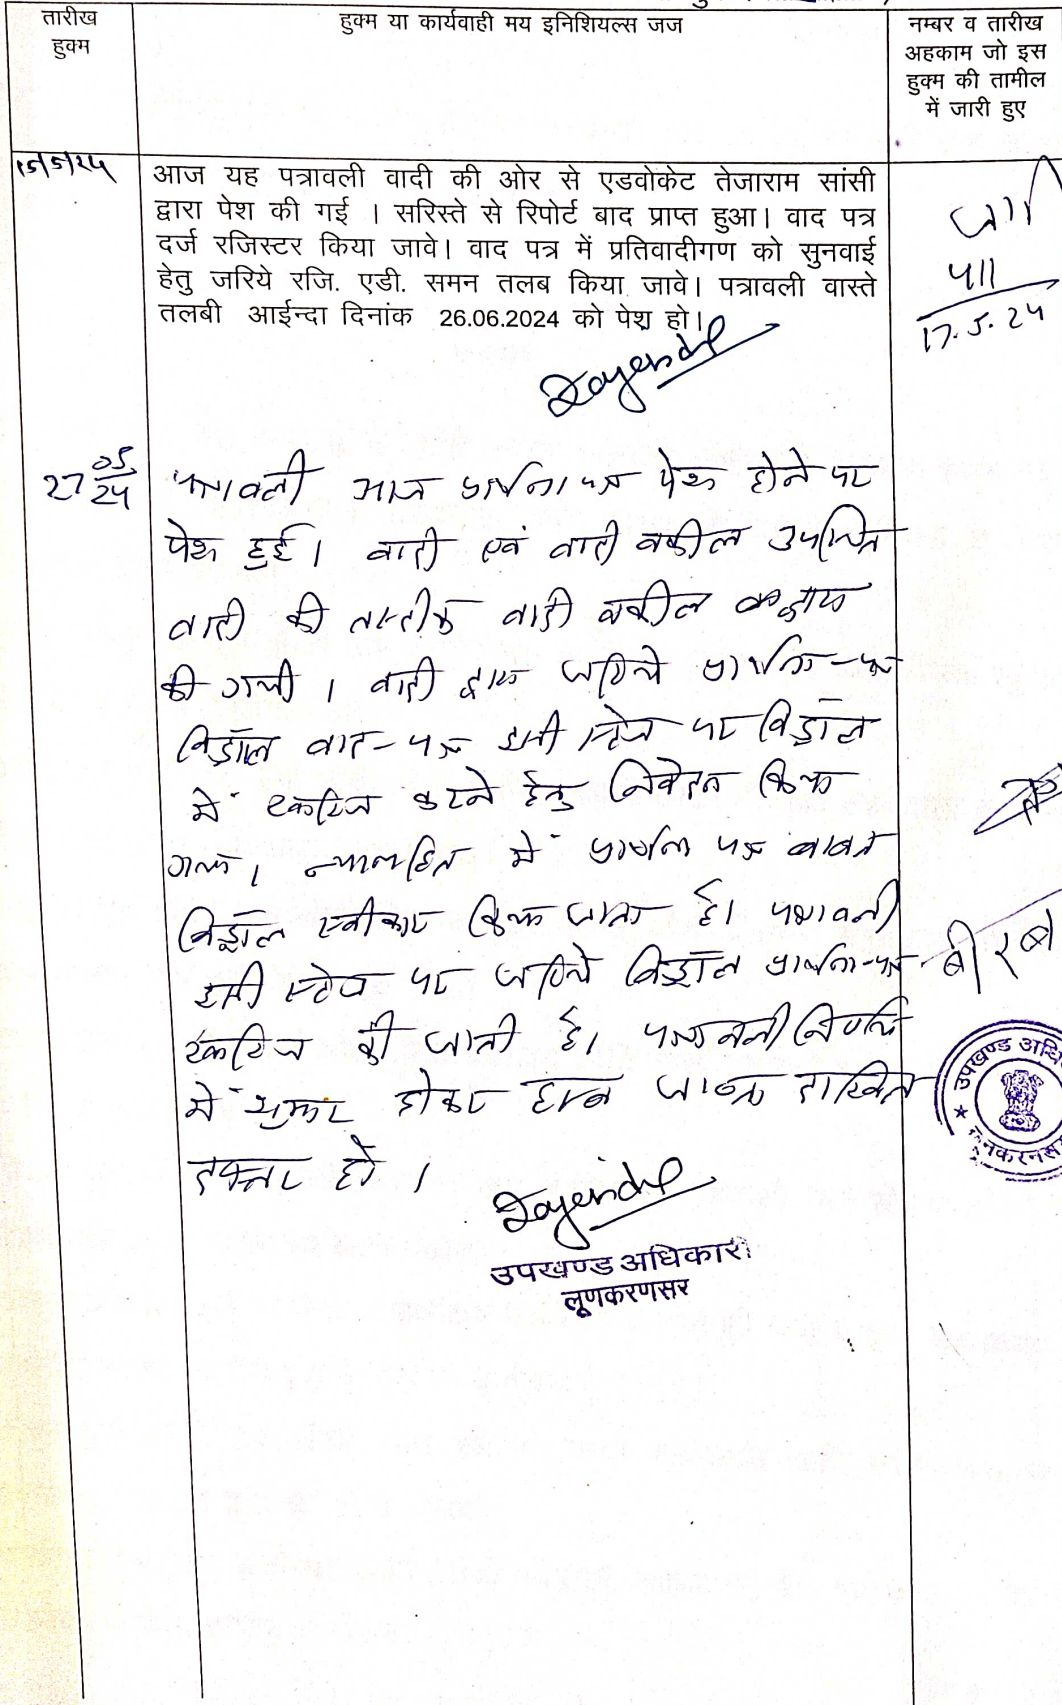 तारीख
हुक्म
हुक्म या कार्यवाही मय इनिशियल्स जज
नम्बर व तारीख
अहकाम जो इस
हुक्म की तामील
में जारी हुए
15/5/24
आज यह पत्रावली वादी की ओर से एडवोकेट तेजाराम सांसी
द्वारा पेश की गई । सरिस्ते से रिपोर्ट बाद प्राप्त हुआ। वाद पत्र
दर्ज रजिस्टर किया जावे। वाद पत्र में प्रतिवादीगण को सुनवाई
हेतु जरिये रजि. एडी. समन तलब किया जावे। पत्रावली वास्ते
तलबी आईन्दा दिनांक 26.06.2024 को पेश हो।
17.5.24
27 05/24
पत्रावली आज प्रार्थना पत्र पेश होने पर
पेश हुई। वादी एवं वादी वकील उपस्थित
वादी की तस्दीक वादी वकील के द्वारा
की गयी । वादी द्वारा जरिये प्रार्थना-पत्र
विड्रॉल वाद-पत्र इसी स्टेज पर विड्रॉल
में खारिज करने हेतु निवेदन किया
गया। न्यायहित में प्रार्थना पत्र बाबत
विड्रॉल स्वीकार किया जाता है। पत्रावली
इसी स्टेज पर जरिये विड्रॉल प्रार्थना-पत्र
खारिज की जाती है। पत्रावली निर्णित
में शुमार होकर दाखिल
दफ्तर हो ।
उपखण्ड अधिकारी
लूणकरणसर
उपखण्ड